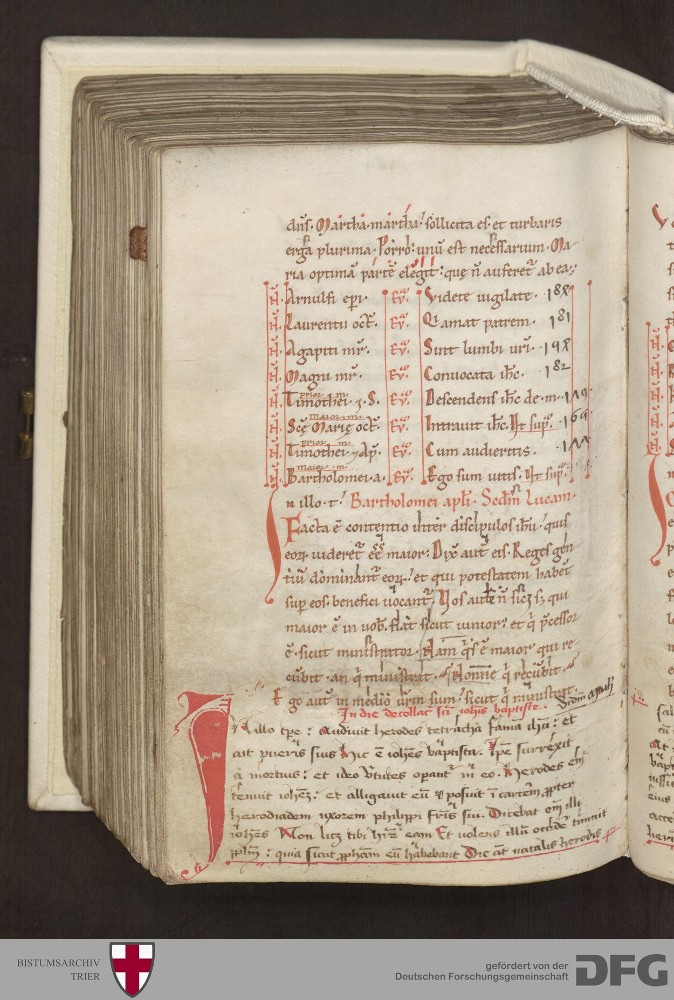 dn̄s. Martha martha sollicita es. et turbaris
erga plurima. Porro unū est necessarium. Ma-
ria optimā partē elegit: quę n̄ auferet᷑ ab ea.
Arnulfi ep̄i. Eṽ. Videte uigilate. 188
Laurentii oct̄. Eṽ. Qi amat patrem. 181
Agapiti mr̄. Eṽ. Sint lumbi ur̄i. 198
Magni mr̄. Eṽ. Convocata ih̄c. 182
Timothei. ⁊. S. Eṽ. Descendens ih̄c de. m.
prior. m. maior. m.
Scę Marię oct̄. Eṽ. Intrauit ih̄c. Rͤ sup̄.
prior. m.
Timothei ⁊ Ap̄. Eṽ. Cum audieritis.
maior. m.
Bartholomei. a. Eṽ. Ego sum uitis. sup̄.
n illo. t̄. Bartholomei apl̄i. Secd̄m Lucam.
Facta ē contentio inter discipulos ih̄u. quis
eoꝝ uideret᷑ eē maior. Dix̄ aut̄ eis. Reges gen-
tiū dominant᷑ eoꝝ. et qui potestatem habent
sup eos. benefici uocant᷑. Vos aut̄ n̄ sic. s; qui
maior ē in uob̄. fiat sicut iunior. et q̇ p̄cessor
ē. sicut ministrator. Nam q̇s ē maior. qui re-
cūbit. an q̇ ministrat. Nonne q̇ recūbit.
Ego aut̄ in medio ur̄m sum. sicut q̇ ministrat.
In die decollac̄ sc̄i ioh̄is baptiste. Scdm
N illo tp̄e: Audivit herodes tetracha fama ih̄u: et
ait pueris suis Hic ē ioh̄es baptista. Ip̄e surrexit
a mortuis: et ideo v̄tutes opant᷑ in eo. Herodes em̄
tenuit ioh̄ez: et alligauit eū ⁊ posuit ī carcem, ꝓpter
herodiadem uxorem philippi fr̄is sui. Dicebat em̄ illi
ioh̄es Non licz tibi hr̄e eam Et volens illū occide᷑ timuit
ppl̄m: quia sicut ꝓph̄am eū habebant Die at̄ natalis herodis
BISTUMSARCHIV
TRIER
gefördert von der
Deutschen Forschungsgemeinschaft
DFG